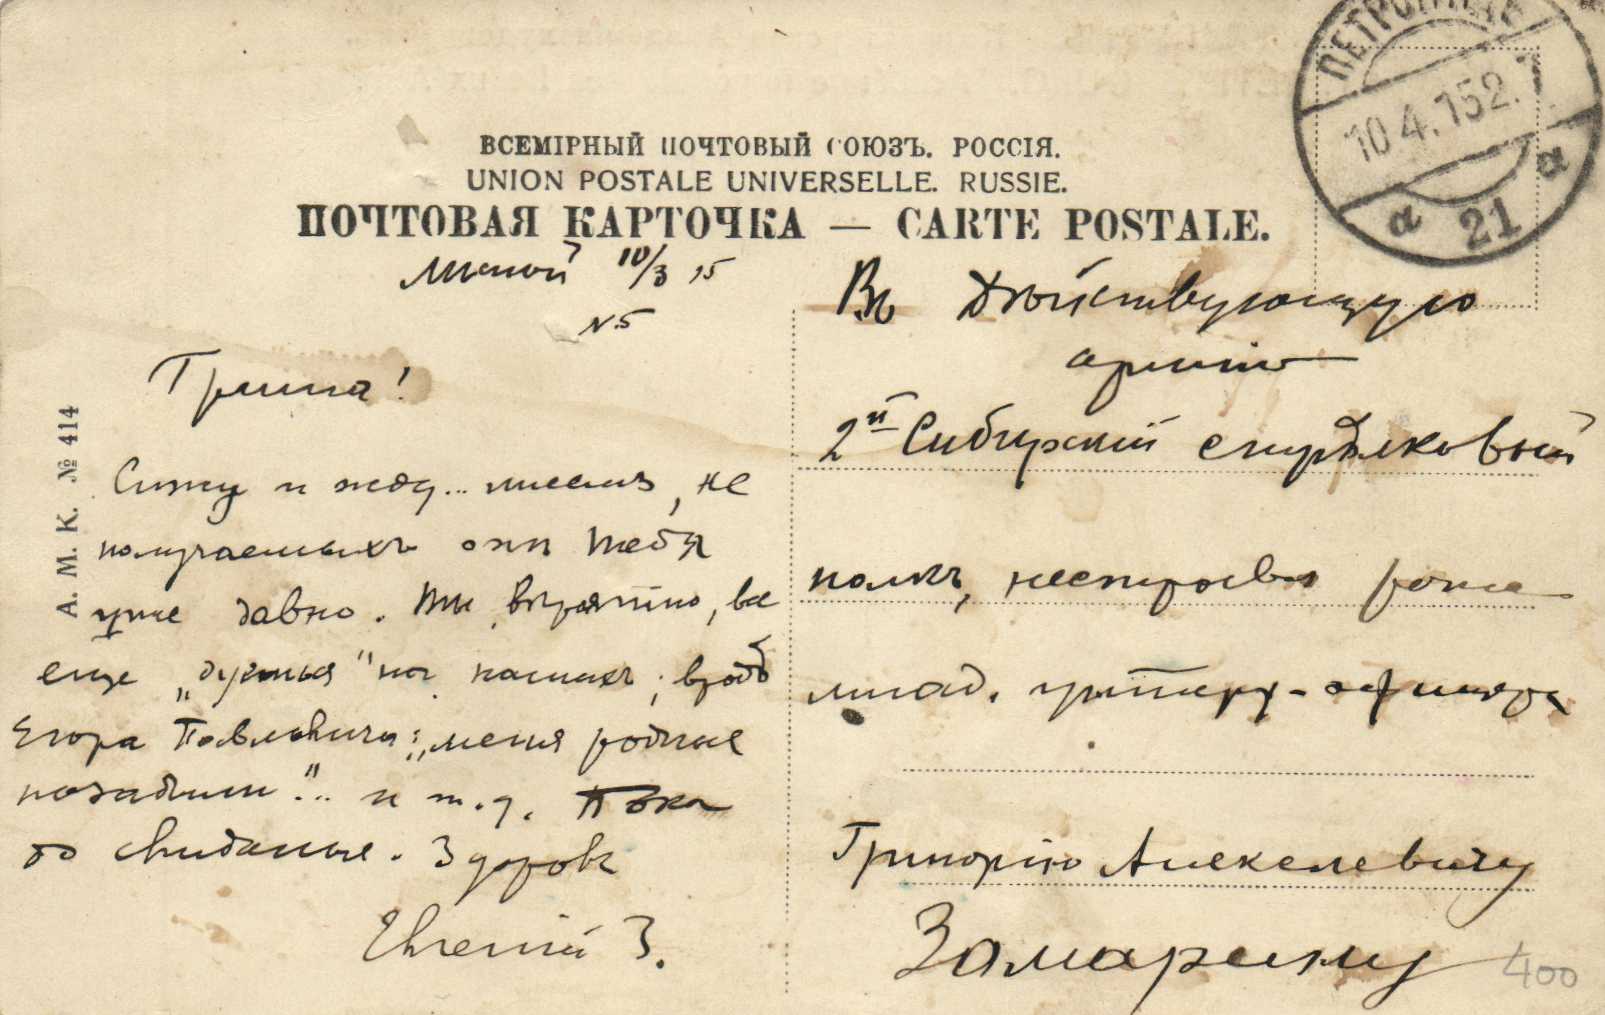 ПЕТРОГРАДЪ
10.4.15 2.
а 21 а
ВСЕМІРНЫЙ ПОЧТОВЫЙ СОЮЗЪ. РОССІЯ.
UNION POSTALE UNIVERSELLE. RUSSIE.
ПОЧТОВАЯ КАРТОЧКА — CARTE POSTALE.
10/3 15
N. 5
Гриша!
Сижу и жду... писемъ, не
получаемыхъ отъ тебя
уже давно. Ты, вѣроятно, все
еще „дуешься" на нашихъ, вродѣ
Егора Павловича: „меня родные
позабыли"... и т. д. Пока
до свиданья. Здоровъ
Евгеній З.
А. М. К. № 414
Въ Дѣйствующую
армію
2й Сибирскій стрѣлковый
полкъ, нестроевая рота
млад. унтеръ-офицеру
Григорію Алексеевичу
Замареину
400